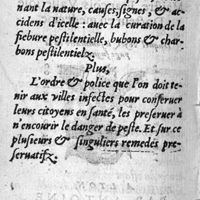 nant la nature, causes, signes, & ac-
cidens d'icelle : auec la curation de la
fiebure pestilentielle, bubons & char-
bons pestilentielz.
Plus,
L'ordre & police que l'on doit te-
nir aux villes infectes pour conseruer
leurs citoyens en santé, les preseruer à
n'encourir le danger de peste. Et sur ce
plusieurs & singuliers remedes pre-
seruatifz.